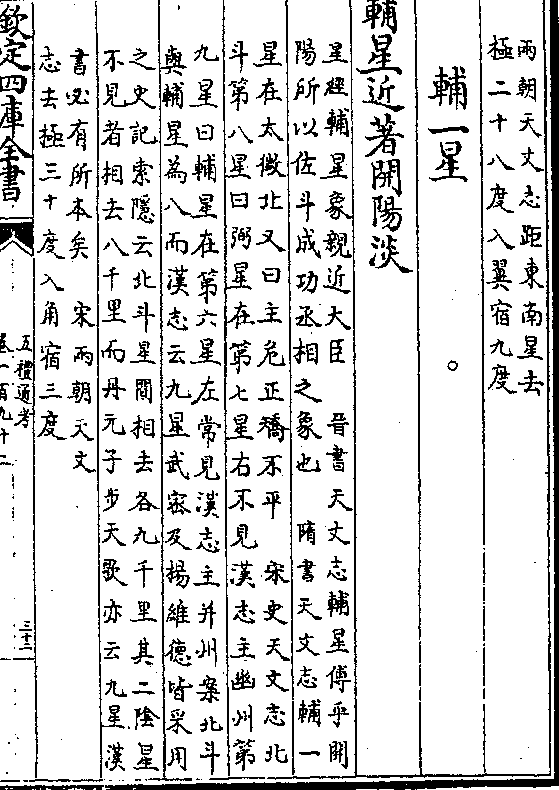 兩朝天文志距東南星去
極二十八度入翼宿九度
輔一星
輔星近著開陽淡
星經輔星象親近大臣 晉書天文志輔星傅乎開
陽所以佐斗成功丞相之象也 隋書天文志輔一
星在太微北又曰主危正矯不平 宋史天文志北
斗第八星曰弼星在第七星右不見漢志主幽州第
九星曰輔星在第六星左常見漢志主并州案北斗
與輔星為八而漢志云九星武宻及楊維德皆采用
之史記索隱云北斗星間相去各九千里其二陰星
不見者相去八千里而丹元子步天歌亦云九星漢
書必有所本矣 宋兩朝天文
志去極三十度入角宿三度
欽定四庫全書
五禮通考
卷一百九十二
三十二